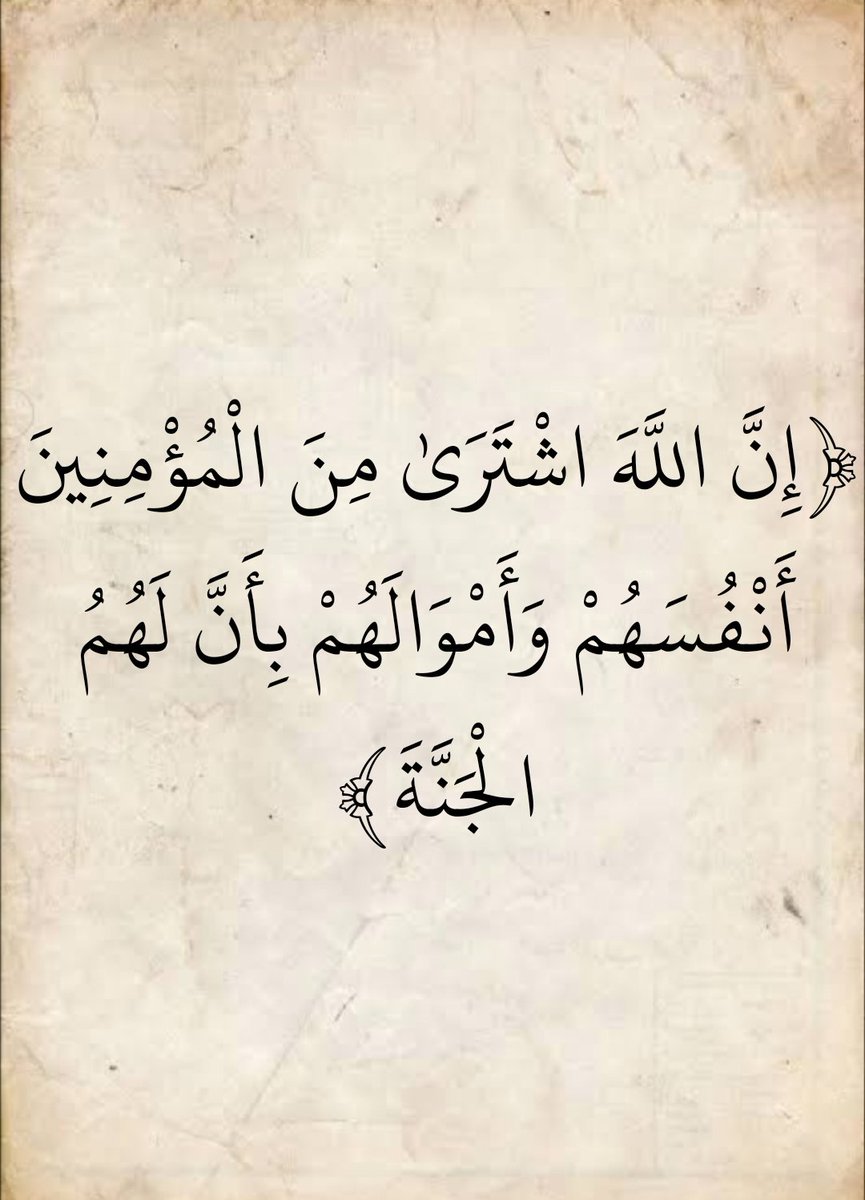 ﴿إِنَّ اللَّهَ اشْتَرَىٰ مِنَ الْمُؤْمِنِينَ
أَنْفُسَهُمْ وَأَمْوَالَهُمْ بِأَنَّ لَهُمُ
الْجَنَّةَ﴾